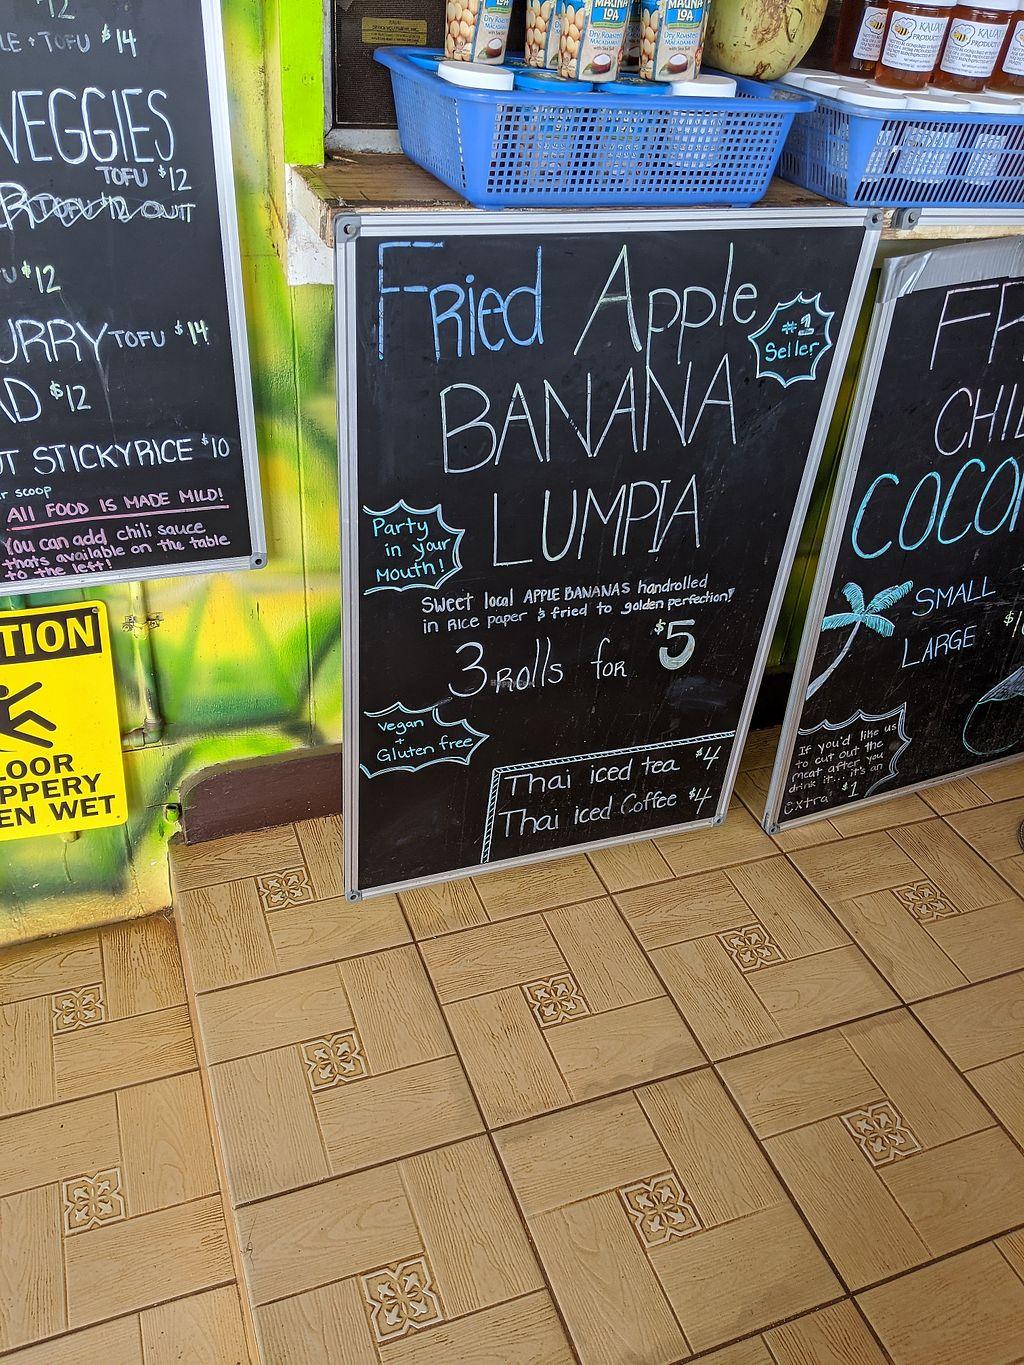 12
LE + TOFU $14
VEGGIES
TOFU $12
TOFU $12 OUT
U $12
URRY TOFU $14
AD $12
UT STICKY RICE $10
r scoop
All FOOD IS MADE MILD!
You can add chili sauce
thats available on the table
to the left!
TION
LOOR
PPERY
EN WET
MAUNA LOA
Dry Roasted
MACADAMIAS
with Sea Salt
MAUNA
LOA
Dry Roasted
MACADAMIAS
with Sea Salt
KAUAI
PRODUCT
KAUAI
PRODUCT
Fried Apple
BANANA
LUMPIA
#1
Seller
Party
in your
Mouth!
Sweet local APPLE BANANAS handrolled
in Rice paper & fried to golden perfection!
3 Rolls for $5
Vegan
+
Gluten free
Thai iced tea $4
Thai iced Coffee $4
FR
CHIL
COCON
SMALL
LARGE
If you'd like us
to cut out the
meat after you
drink it... it's an
extra $1